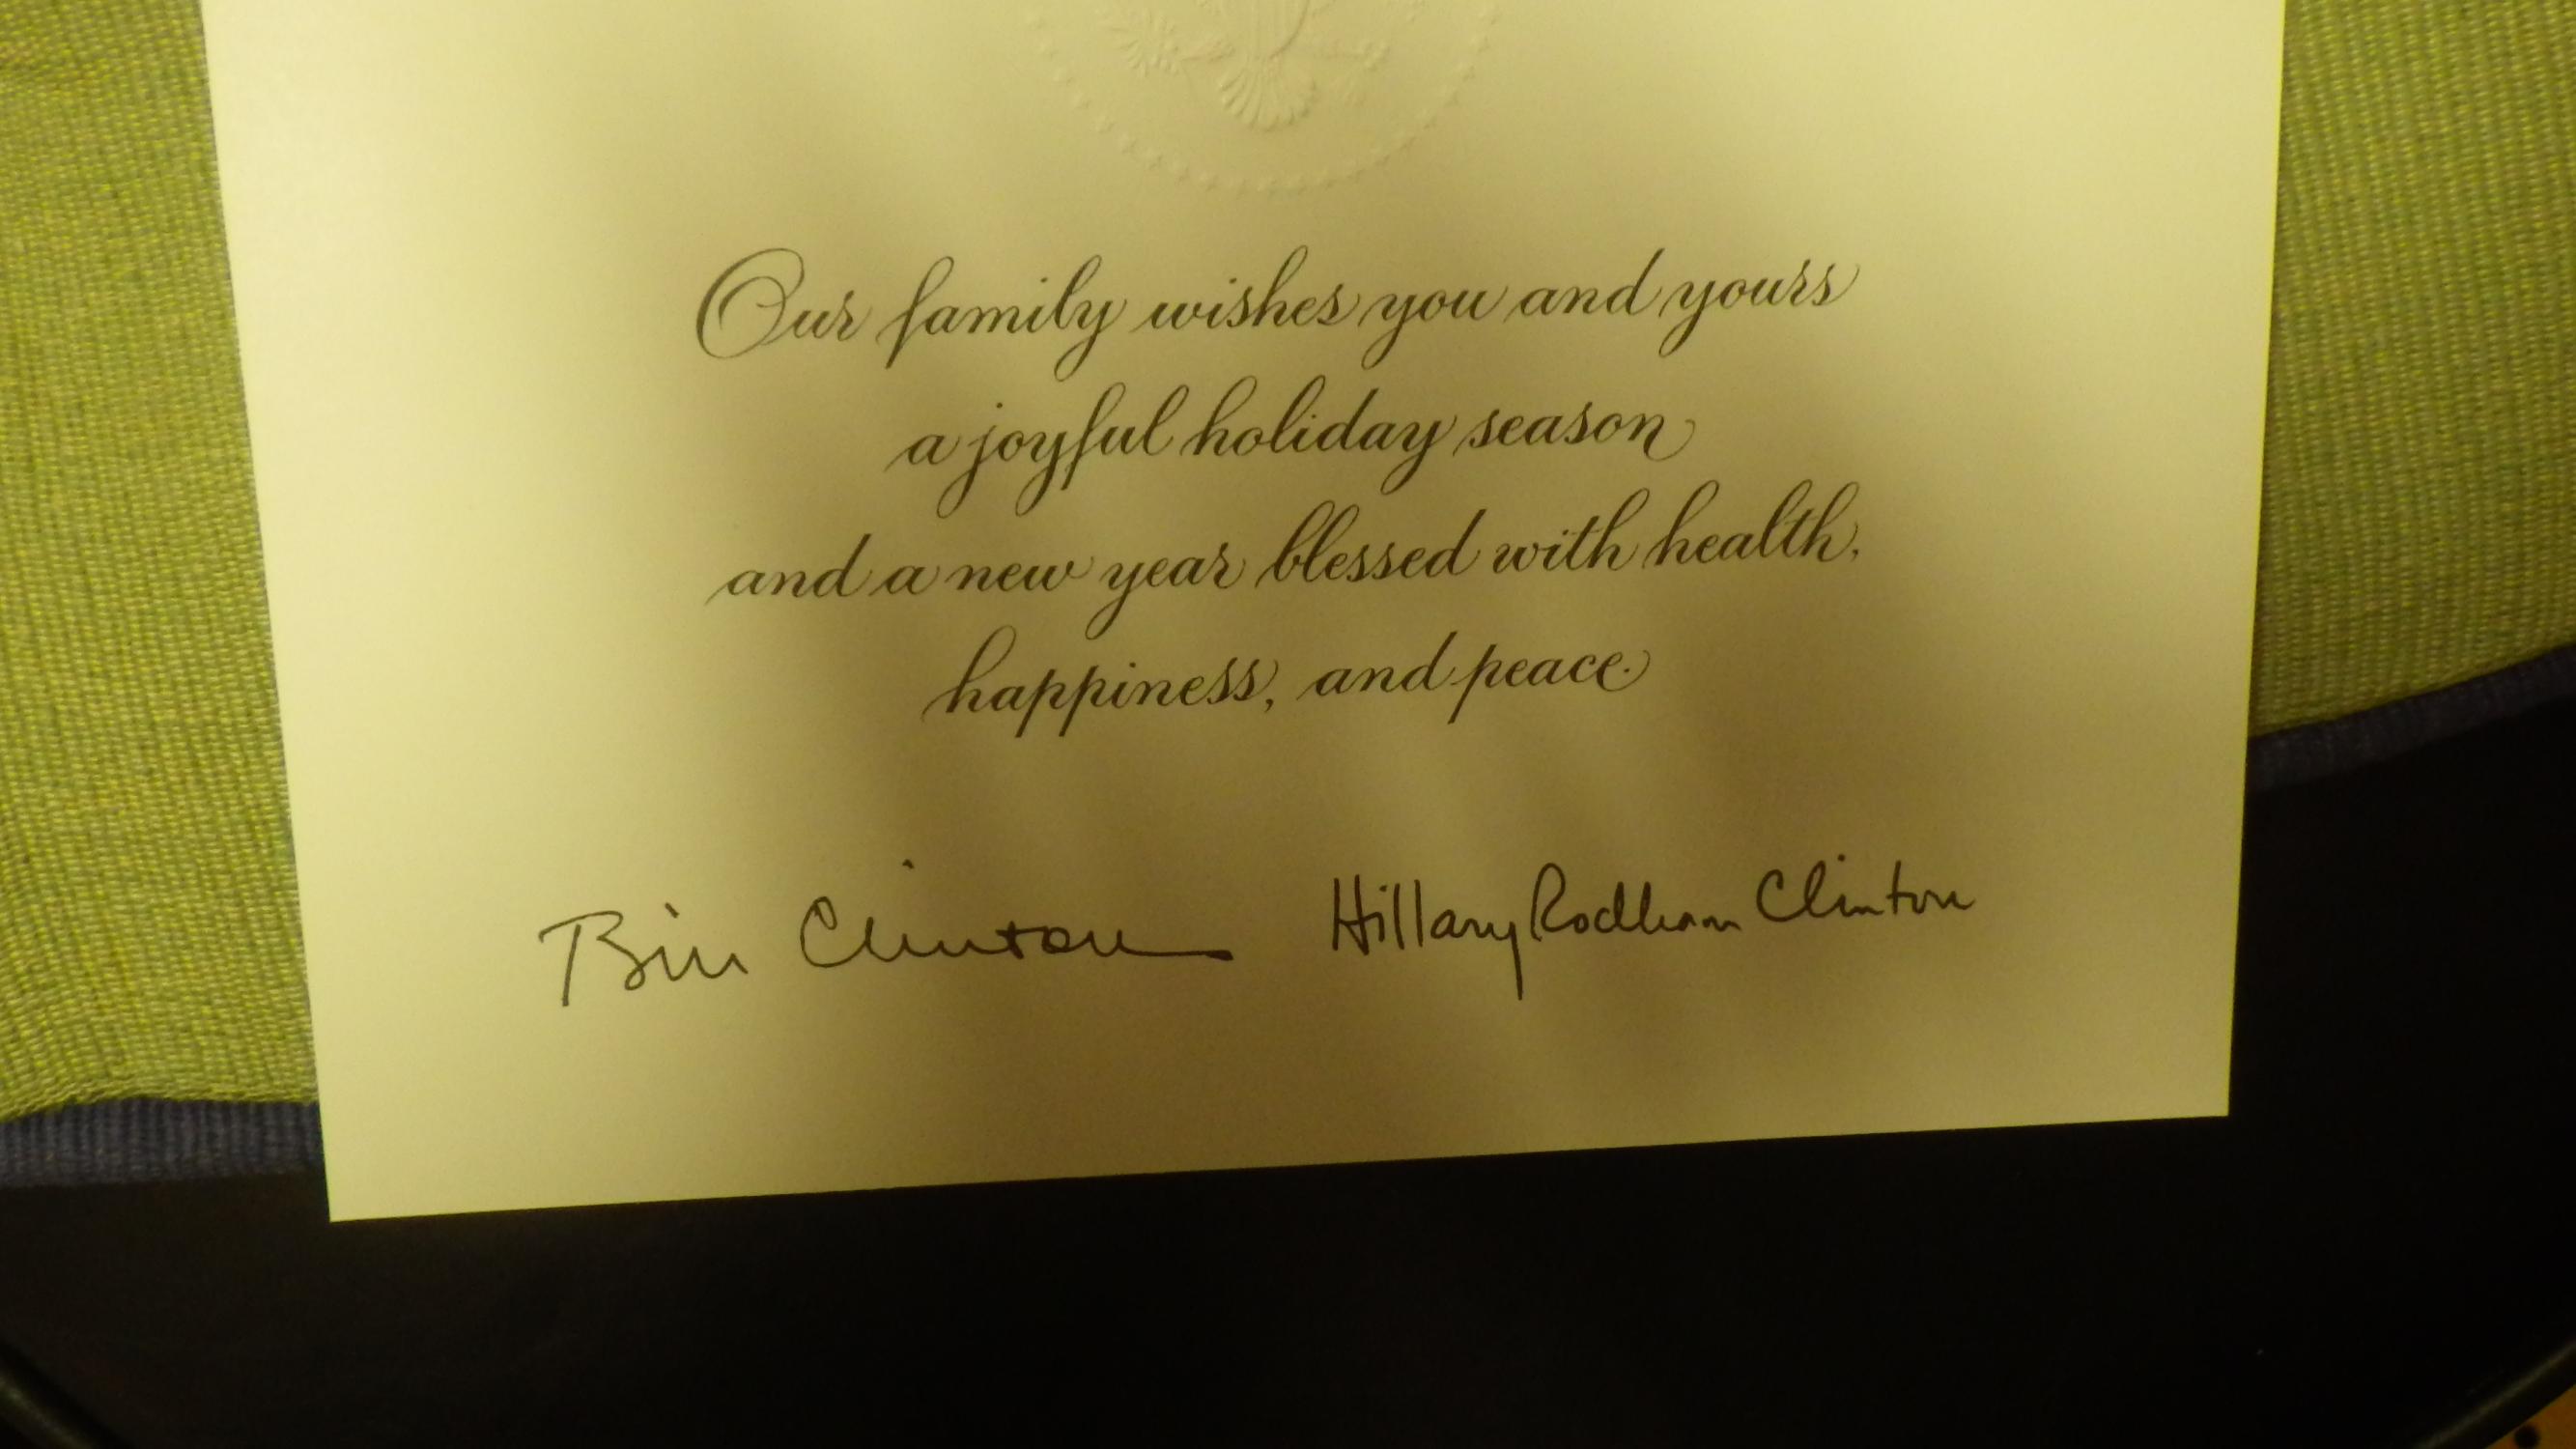 Our family wishes you and yours
a joyful holiday season
and a new year blessed with health,
happiness, and peace.
Bill Clinton Hillary Rodham Clinton